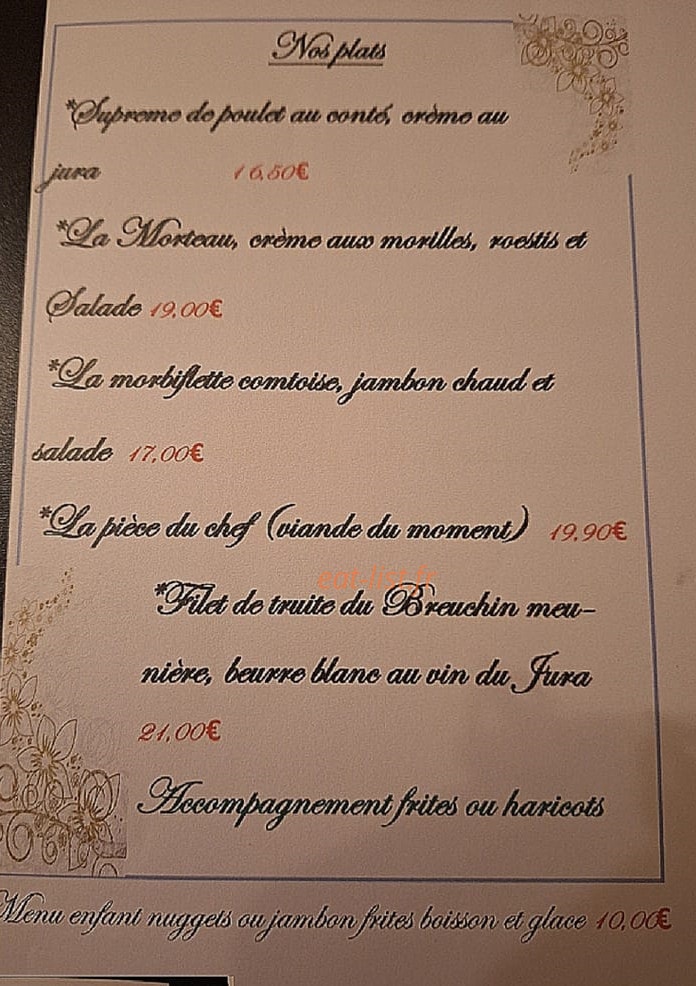 Nos plats
*Supreme de poulet au conté, crème au
jura 16,50€
*La Morteau, crème aux morilles, roestis et
Salade 19,00€
*La morbiflette comtoise, jambon chaud et
salade 17,00€
*La pièce du chef (viande du moment) 19,90€
eat-list.fr
*Filet de truite du Breuchin meu-
nière, beurre blanc au vin du Jura
21,00€
Accompagnement frites ou haricots
Menu enfant nuggets ou jambon frites boisson et glace 10,00€